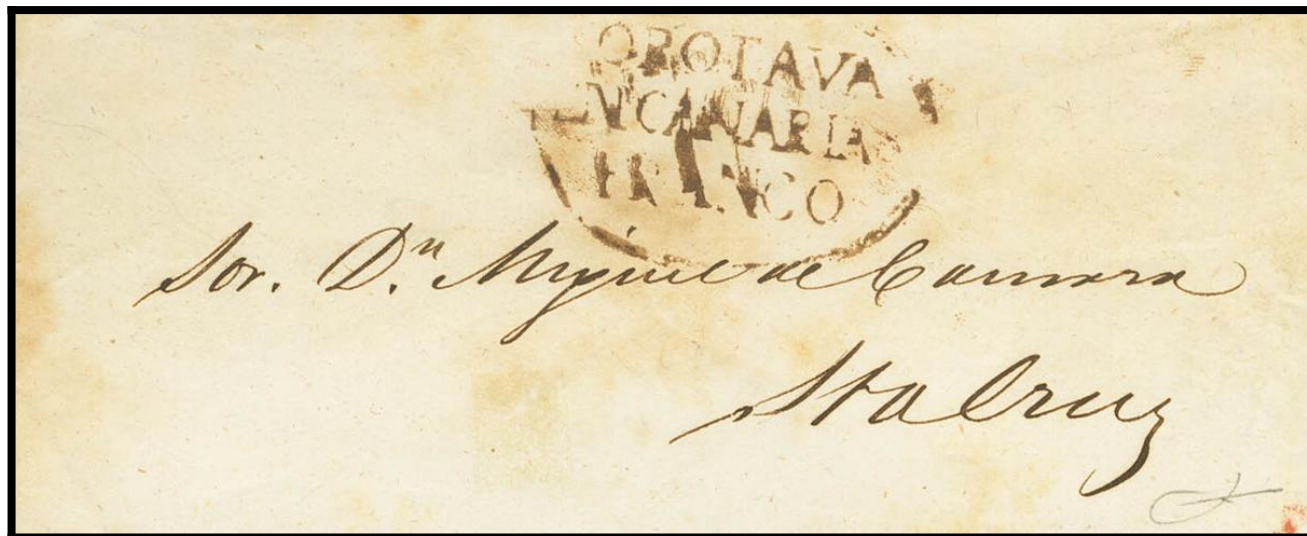 OROTAVA
EN CANARIAS
FRANCO
Sor. Dn. Miguel de Camara
Sta Cruz